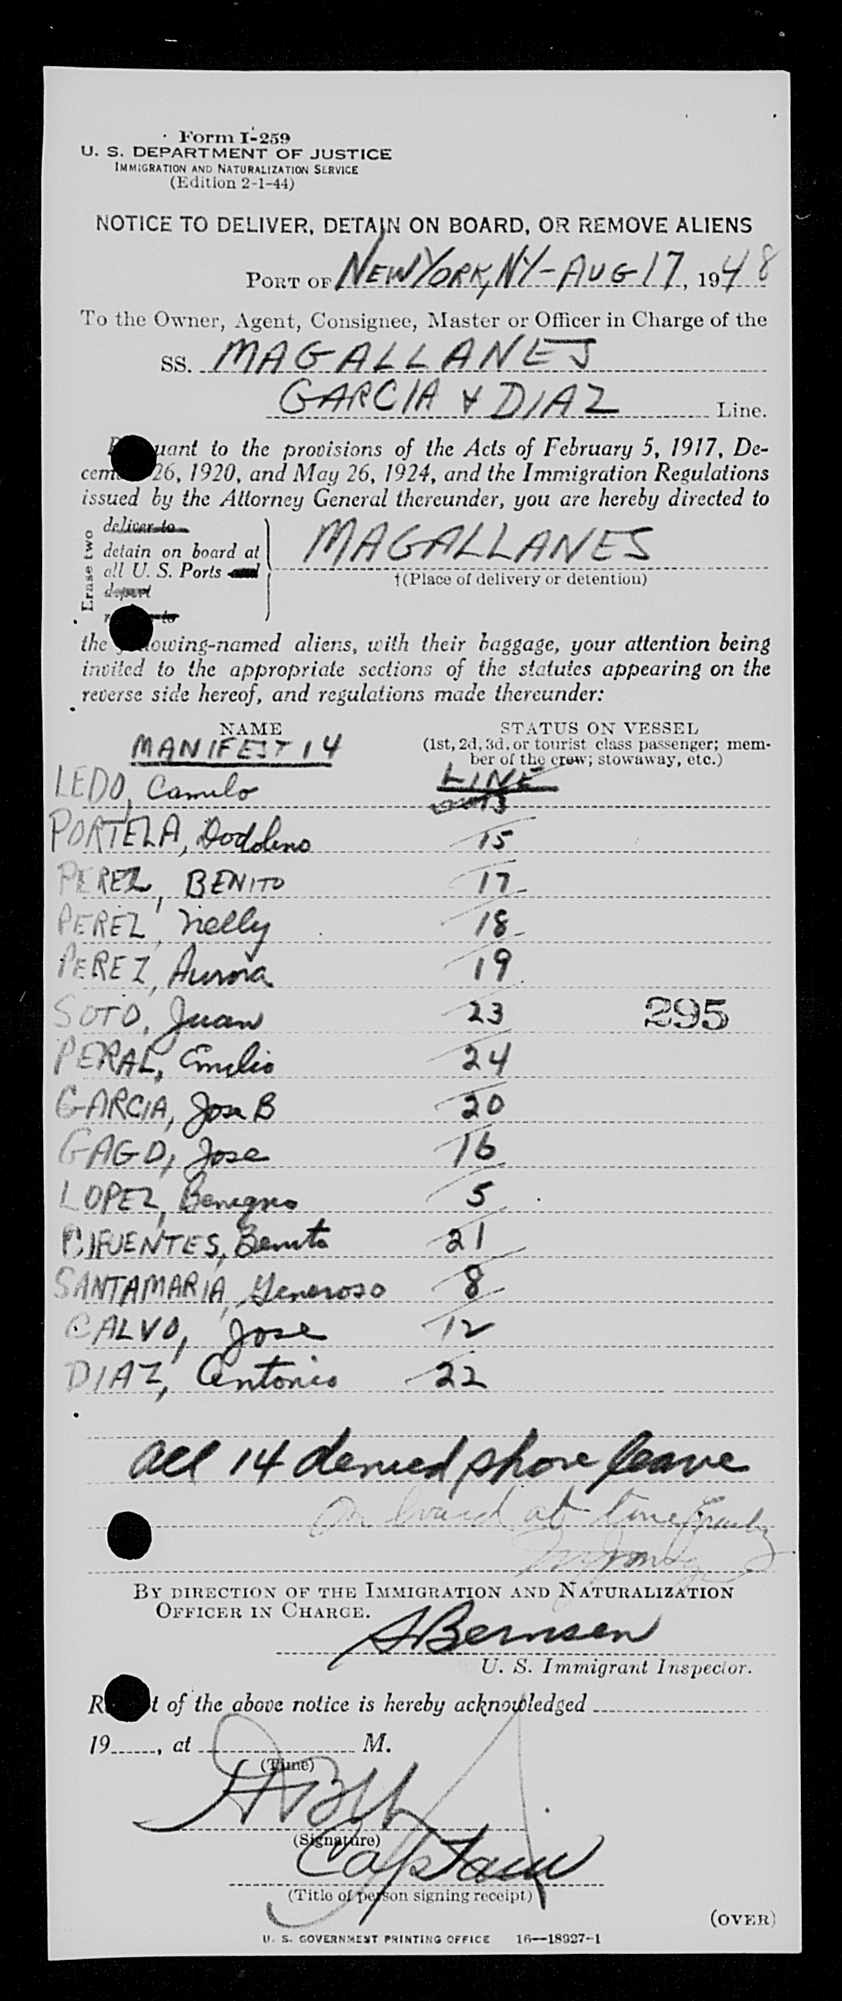 Form I-259
U. S. DEPARTMENT OF JUSTICE
IMMIGRATION AND NATURALIZATION SERVICE
(Edition 2-1-44)
NOTICE TO DELIVER, DETAIN ON BOARD, OR REMOVE ALIENS
PORT OF NEW YORK, NY - AUG 17, 1948
To the Owner, Agent, Consignee, Master or Officer in Charge of the
SS. MAGALLANES
GARCIA & DIAZ Line.
uant to the provisions of the Acts of February 5, 1917, De-
cem 26, 1920, and May 26, 1924, and the Immigration Regulations
issued by the Attorney General thereunder, you are hereby directed to
Erase two
deliver to
detain on board at
all U. S. Ports and
deport
to
MAGALLANES
†(Place of delivery or detention)
the owing-named aliens, with their baggage, your attention being
invited to the appropriate sections of the statutes appearing on the
reverse side hereof, and regulations made thereunder:
NAME STATUS ON VESSEL
(1st, 2d, 3d, or tourist class passenger; mem-
ber of the crew; stowaway, etc.)
MANIFEST 14 LINE
LEDO, Camilo 13
PORTELA, 15
PEREZ, BENITO 17
PEREZ, Nelly 18
PEREZ, Aurora 19
SOTO, Juan 23 295
PERAL, Emilio 24
GARCIA, Jose B 20
GAGO, Jose 16
LOPEZ, Benigno 5
CIFUENTES, Benito 21
SANTAMARIA, Generoso 8
CALVO, Jose 12
DIAZ, Antonio 22
all 14 denied shore leave
On board at time
BY DIRECTION OF THE IMMIGRATION AND NATURALIZATION
OFFICER IN CHARGE.
S Bernsen
U. S. Immigrant Inspector.
R t of the above notice is hereby acknowledged
19 , at M.
(Time)
(Signature)
Captain
(Title of person signing receipt)
(OVER)
U. S. GOVERNMENT PRINTING OFFICE 16—18927-1